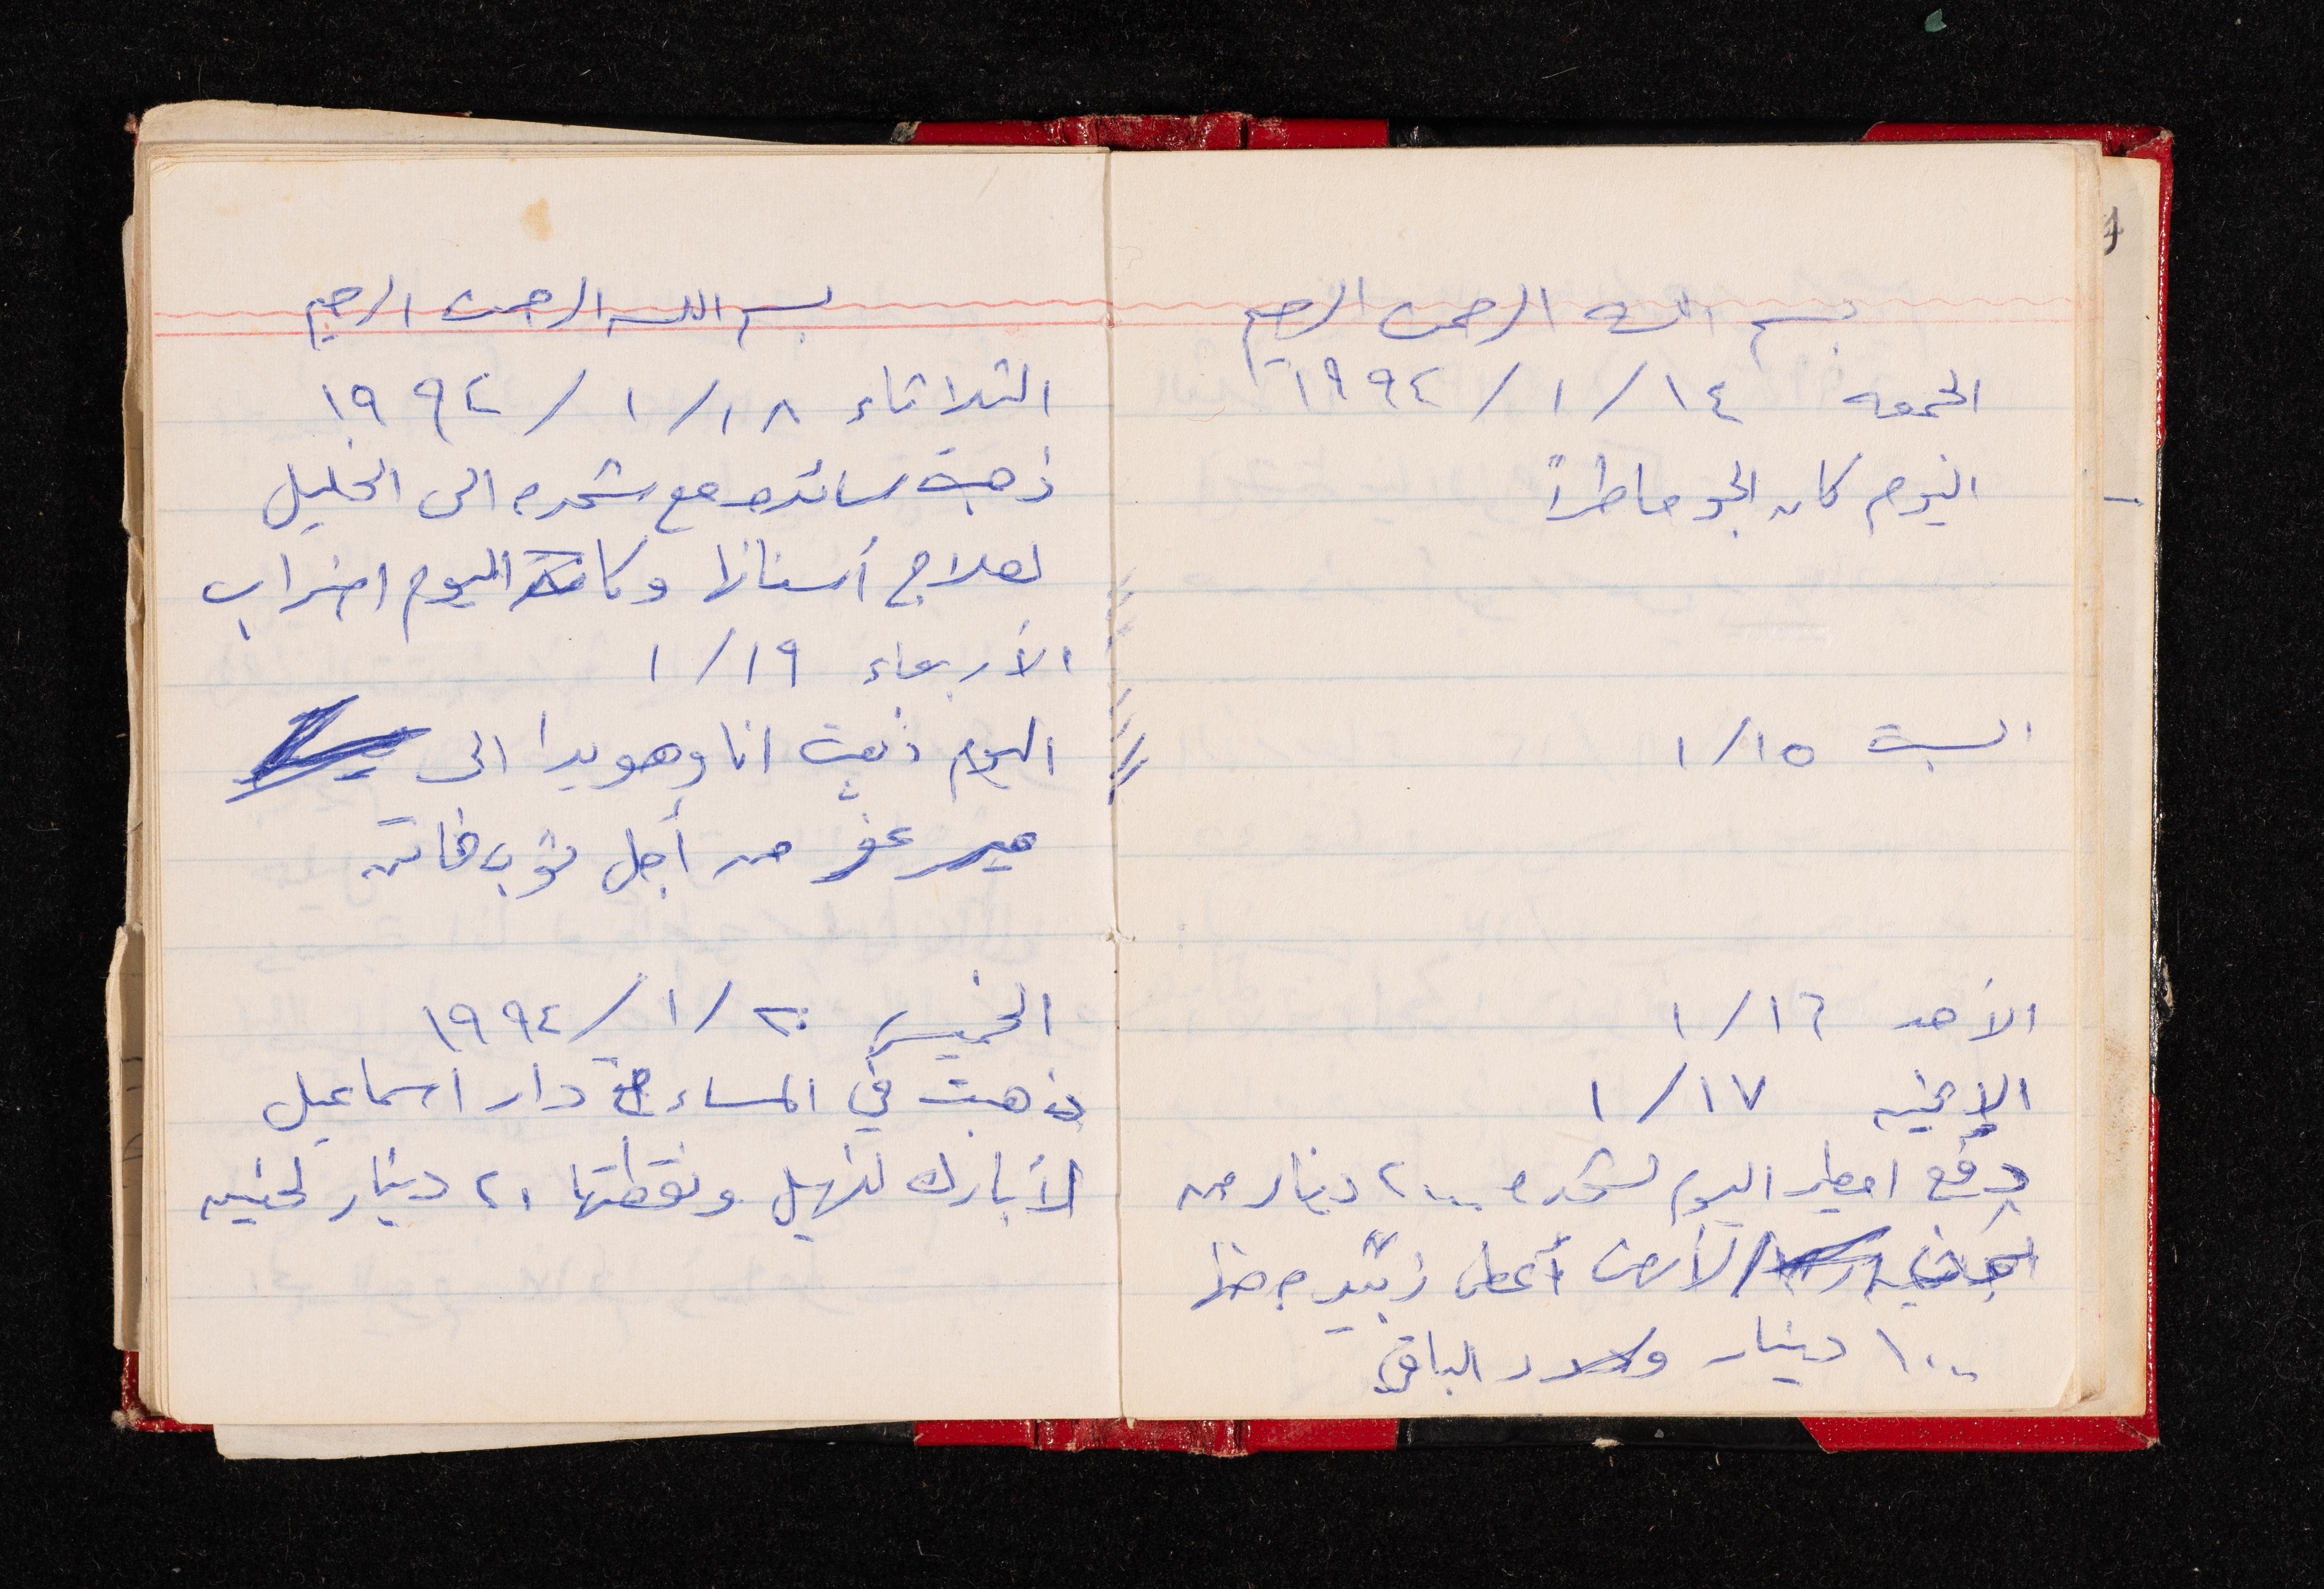 بسم الله الرحمن الرحيم
الجمعه ١٤/١/١٩٩٤
اليوم كان الجو ماطراً
السبت ١٥/١
الأحد ١٦/١
الإثنين ١٧/١
دفع امطير اليوم لشحده ٢٠٠ دينار من
الأرض أعطى زبيده منها
١٠٠ دينار و الباقي
بسم الله الرحمن الرحيم
الثلاثاء ١٨/١/١٩٩٤
ذهبت سائده مع شحده الى الخليل
لعلاج أسنانها وكان اليوم اضراب
الأربعاء ١٩/١
اليوم ذهبت انا وهويدا الى
من أجل ثوب فاتن
الخميس ٢٠/١/١٩٩٤
ذهبت في المساء دار اسماعيل
لأبارك لنهيل ونقطتها ٢٠ دينار